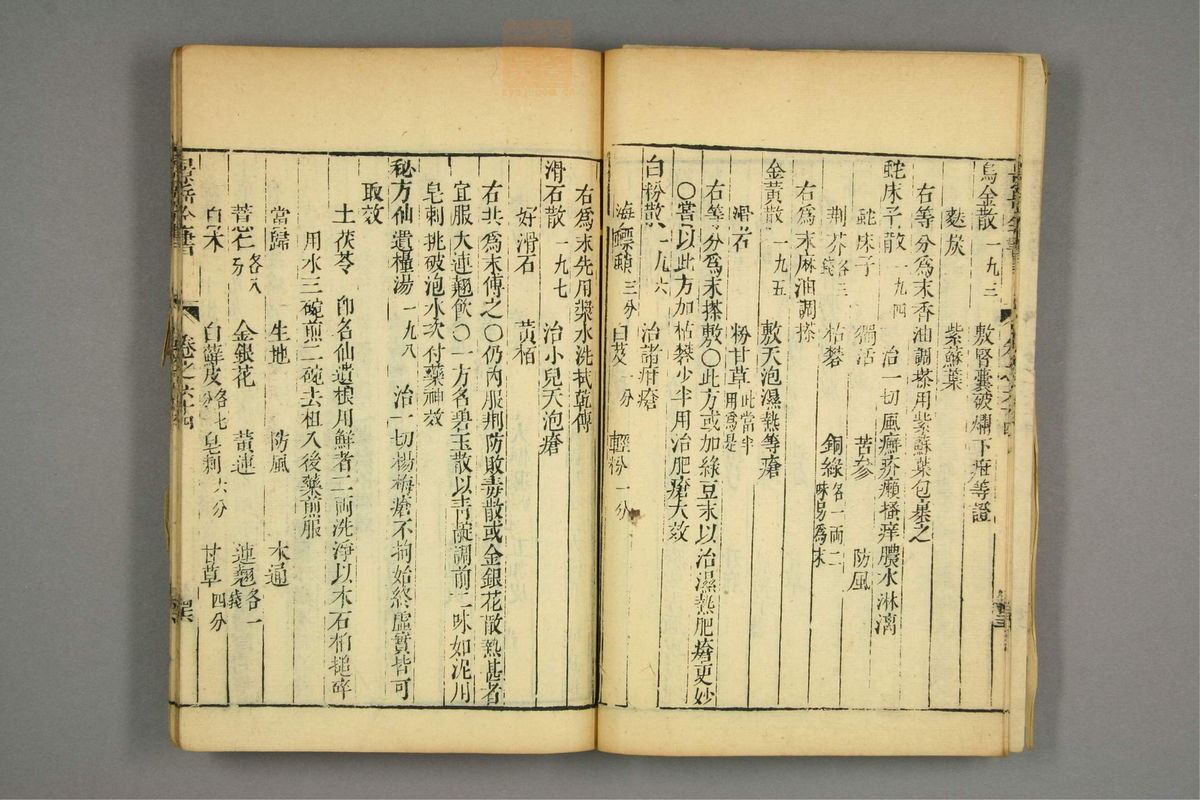 烏金散 一九三 敷腎囊破爛下疳等證
麩炭 紫蘇葉
右等分爲末香油調搽用紫蘇葉包裹之
蛇床子散 一九四 治一切風癬疥癩搔痒膿水淋漓
蛇床子 獨活 苦參 防風
荆芥各三錢 枯礬 銅綠各一両二味另爲末
右爲末麻油調搽
金黃散 一九五 敷天泡濕熱等瘡
滑石 粉甘草此當半用爲是
右等分爲末搽敷〇此方或加綠豆末以治濕熱肥瘡更妙
〇嘗以此方加枯礬少半用治肥瘡大效
白粉散 一九六 治諸疳瘡
海螵蛸三分 白芨一分 輕粉一分
右爲末先用漿水洗拭乾傅
滑石散 一九七 治小兒天泡瘡
好滑石 黃栢
右共爲末傅之〇仍內服荆防敗毒散或金銀花散熱甚者
宜服大連翹飲〇一方名碧玉散以青靛調前二味如泥用
皂刺挑破泡水次付藥神效
秘方仙遺糧湯 一九八 治一切楊梅瘡不拘始終虛實皆可
取效
土茯苓 卽名仙遺粮用鮮者二両洗淨以木石桕搥碎
用水三碗煎二碗去柤入後藥煎服
當歸 生地 防風 木通
薏苡仁各八分 金銀花 黃連 連翹各一錢
白朮 白蘚皮各七分 皂刺六分 甘草四分
景岳全書 卷之六十四